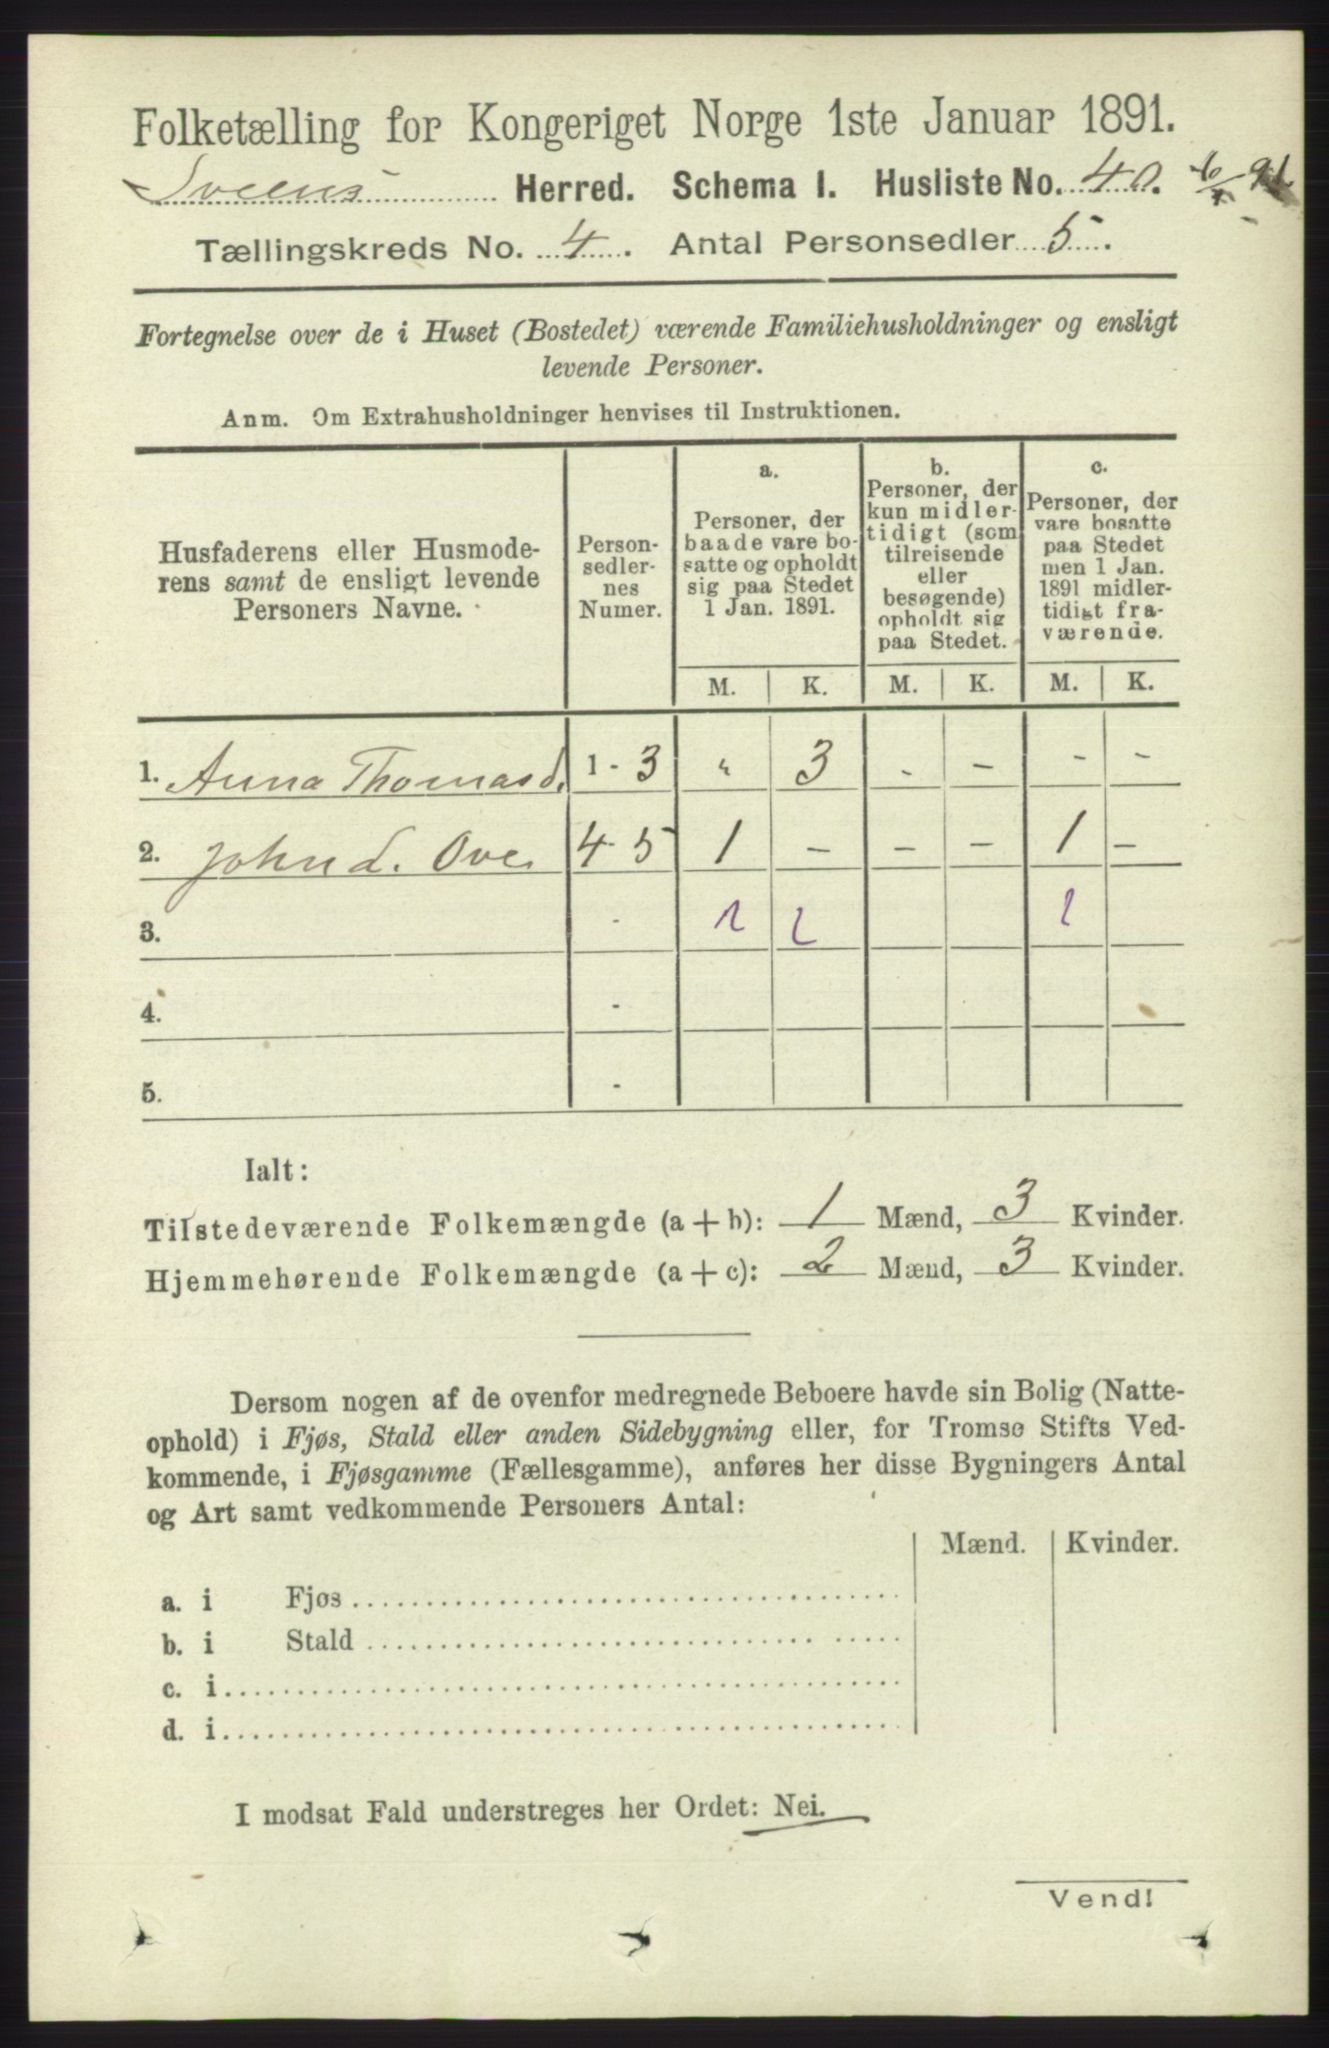 Folketælling for Kongeriget Norge 1ste Januar 1891.
Sveens Herred. Schema I. Husliste No. 40.
Tællingskreds No. 4. Antal Personsedler 5.
Fortegnelse over de i Huset (Bostedet) værende Familiehusholdninger og ensligt
levende Personer.
Anm. Om Extrahusholdninger henvises til Instruktionen.
Husfaderens eller Husmode-
rens samt de ensligt levende
Personers Navne.
Person-
sedler-
nes
Numer.
a.
Personer, der
baade vare bo-
satte og opholdt
sig paa Stedet
1 Jan. 1891.
b.
Personer, der
kun midler-
tidigt (som
tilreisende
eller
besøgende)
opholdt sig
paa Stedet.
c.
Personer, der
vare bosatte
paa Stedet
men 1 Jan.
1891 midler-
tidigt fra-
værende.
M. K. M. K. M. K.
1. Anna Thomasd. 1 - 3 " 3 - - - -
2. John L. Ove 4 - 5 1 - - - 1 -
3. -
4. -
5. -
Ialt:
Tilstedeværende Folkemængde (a + b): 1 Mænd, 3 Kvinder.
Hjemmehørende Folkemængde (a + c): 2 Mænd, 3 Kvinder.
Dersom nogen af de ovenfor medregnede Beboere havde sin Bolig (Natte-
ophold) i Fjøs, Stald eller anden Sidebygning eller, for Tromsø Stifts Ved-
kommende, i Fjøsgamme (Fællesgamme), anføres her disse Bygningers Antal
og Art samt vedkommende Personers Antal:
Mænd. Kvinder.
a. i Fjøs
b. i Stald
c. i
d. i
I modsat Fald understreges her Ordet: Nei.
Vend!